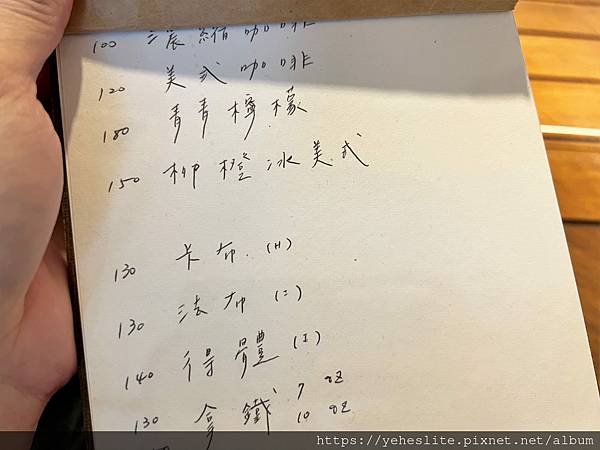 100 濃縮咖啡
120 美式咖啡
180 青青檸檬
150 柳橙冰美式
130 卡布 (H)
130 法布 (I)
140 得體 (I)
130 拿鐵、7 oz
10 oz
https://yeheslite.pixnet.net/album